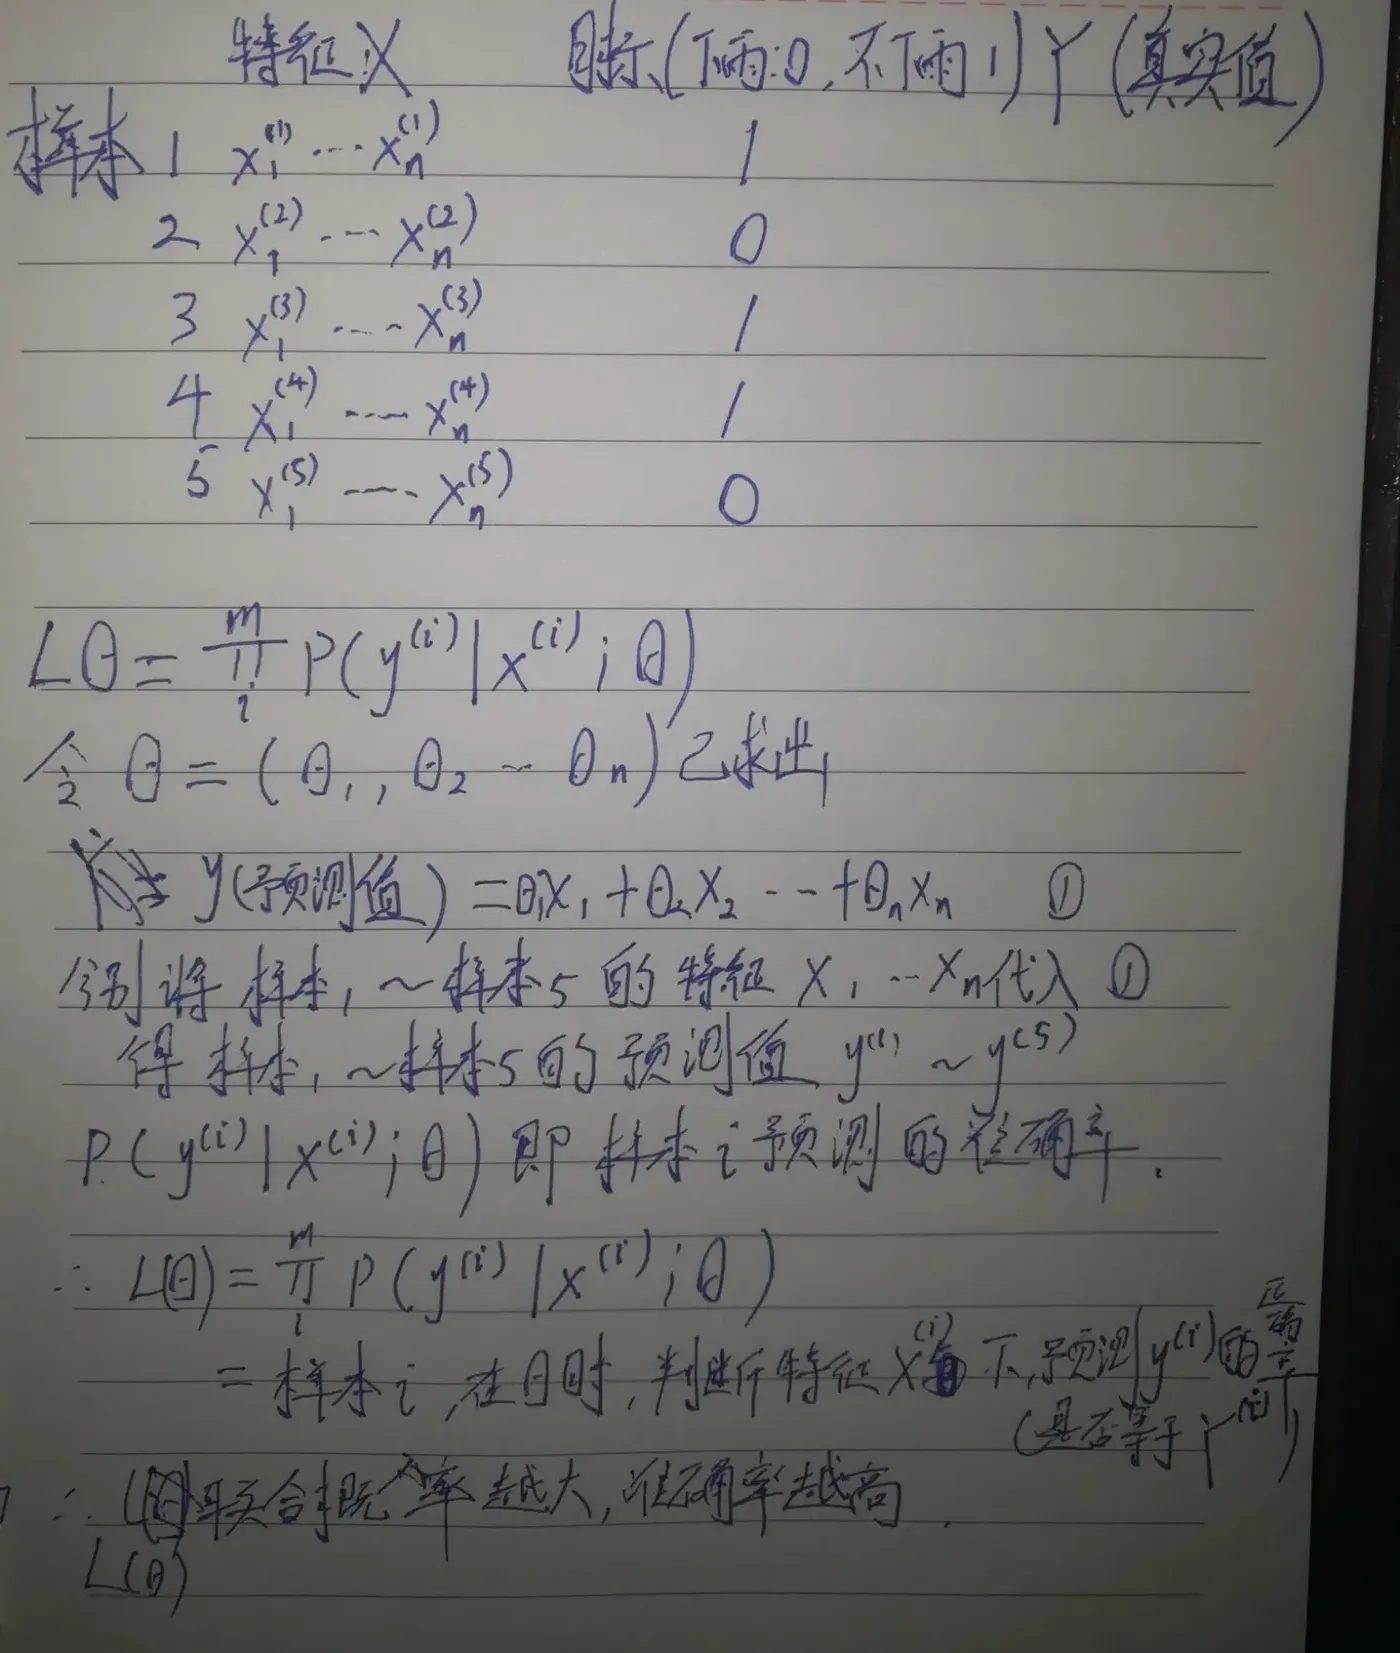 特征X 目标(下雨:0,不下雨1)Y(真实值)
样本1 x₁⁽¹⁾ ··· xₙ⁽¹⁾ 1
2 x₁⁽²⁾ ··· xₙ⁽²⁾ 0
3 x₁⁽³⁾ ···· xₙ⁽³⁾ 1
4 x₁⁽⁴⁾ ···· xₙ⁽⁴⁾ 1
5 x₁⁽⁵⁾ ···· xₙ⁽⁵⁾ 0
Lθ = ∏ᵢᵐ P(y⁽ⁱ⁾|x⁽ⁱ⁾;θ)
令 θ = (θ₁,θ₂ ~ θₙ)已求出
y(预测值)=θ₁x₁+θ₂x₂ ···+θₙxₙ ①
分别将样本1~样本5的特征X₁···Xₙ代入①
得样本1~样本5的预测值 y⁽¹⁾~y⁽⁵⁾
P(y⁽ⁱ⁾|x⁽ⁱ⁾;θ)即样本i预测的准确率.
∴ L(θ) = ∏ᵢᵐ P(y⁽ⁱ⁾|x⁽ⁱ⁾;θ)
= 样本i,在θ时,判断特征X⁽ⁱ⁾下,预测y⁽ⁱ⁾的正确率
(是否等于Y⁽ⁱ⁾)
∴ 联合概率越大,准确率越高.
L(θ)